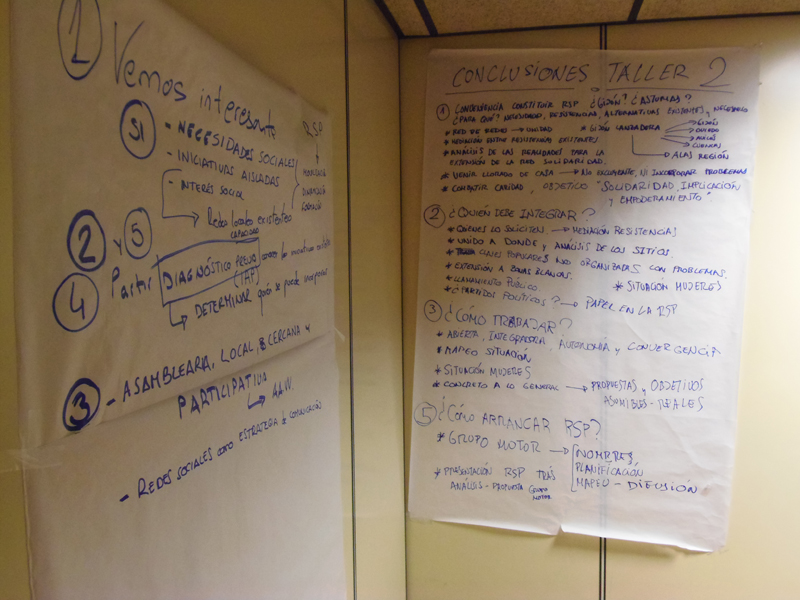 1 Vemos interesante
SI - NECESIDADES SOCIALES
RSP
- INICIATIVAS AISLADAS
- INTERÉS SOCIAL
Redes locales existentes
CAPACIDAD
2 y 5
4 Partir DIAGNÓSTICO PREVIO
(IAP)
DETERMINAR quién se puede incorporar
3 - ASAMBLEARIA, LOCAL, CERCANA y
PARTICIPATIVA
AA.VV.
- REDES SOCIALES como ESTRATEGIA de COMUNICACIÓN
CONCLUSIONES TALLER 2
1 CONVENIENCIA CONSTITUIR RSP ¿GIJÓN? ¿ASTURIAS?
¿PARA QUÉ? NECESIDADES, RESISTENCIAS, ALTERNATIVAS EXISTENTES y NECESARIO
* RED DE REDES → UNIDAD * GIJÓN LANZADERA
GIJÓN
OVIEDO
AVILÉS
CUENCAS
* MEDIACIÓN ENTRE RESISTENCIAS EXISTENTES
* ANÁLISIS DE LAS REALIDADES PARA LA → ALAS REGIÓN
EXTENSIÓN DE LA RED SOLIDARIDAD.
* VENIR LLORADO DE CASA → NO EXCLUYENTE, NI INCORPORAR PROBLEMAS
* COMBATIR CARIDAD, OBJETIVO "SOLIDARIDAD, IMPLICACIÓN
y EMPODERAMIENTO"
2 ¿QUIÉN DEBE INTEGRAR?
* QUIENES LO SOLICITEN → MEDIACIÓN RESISTENCIAS
* UNIDO A DONDE y ANÁLISIS DE LOS SITIOS.
* CLASES POPULARES NO ORGANIZADAS CON PROBLEMAS.
* EXTENSIÓN A ZONAS BLANCAS. * SITUACIÓN MUJERES
* LLAMAMIENTO PÚBLICO
* ¿PARTIDOS POLÍTICOS? → PAPEL EN LA RSP
3 ¿CÓMO TRABAJAR?
* ABIERTA, INTEGRADORA, AUTONOMÍA y CONVERGENCIA
* MAPEO SITUACIÓN
* SITUACIÓN MUJERES
* CONCRETO A LO GENERAL → PROPUESTAS y OBJETIVOS
ASUMIBLES - REALES
5 ¿CÓMO ARRANCAR RSP?
* GRUPO MOTOR → NOMBRES
PLANIFICACIÓN
MAPEO - DIFUSIÓN
* PRESENTACIÓN RSP TRÁS
ANÁLISIS - PROPUESTA GRUPO
MOTOR